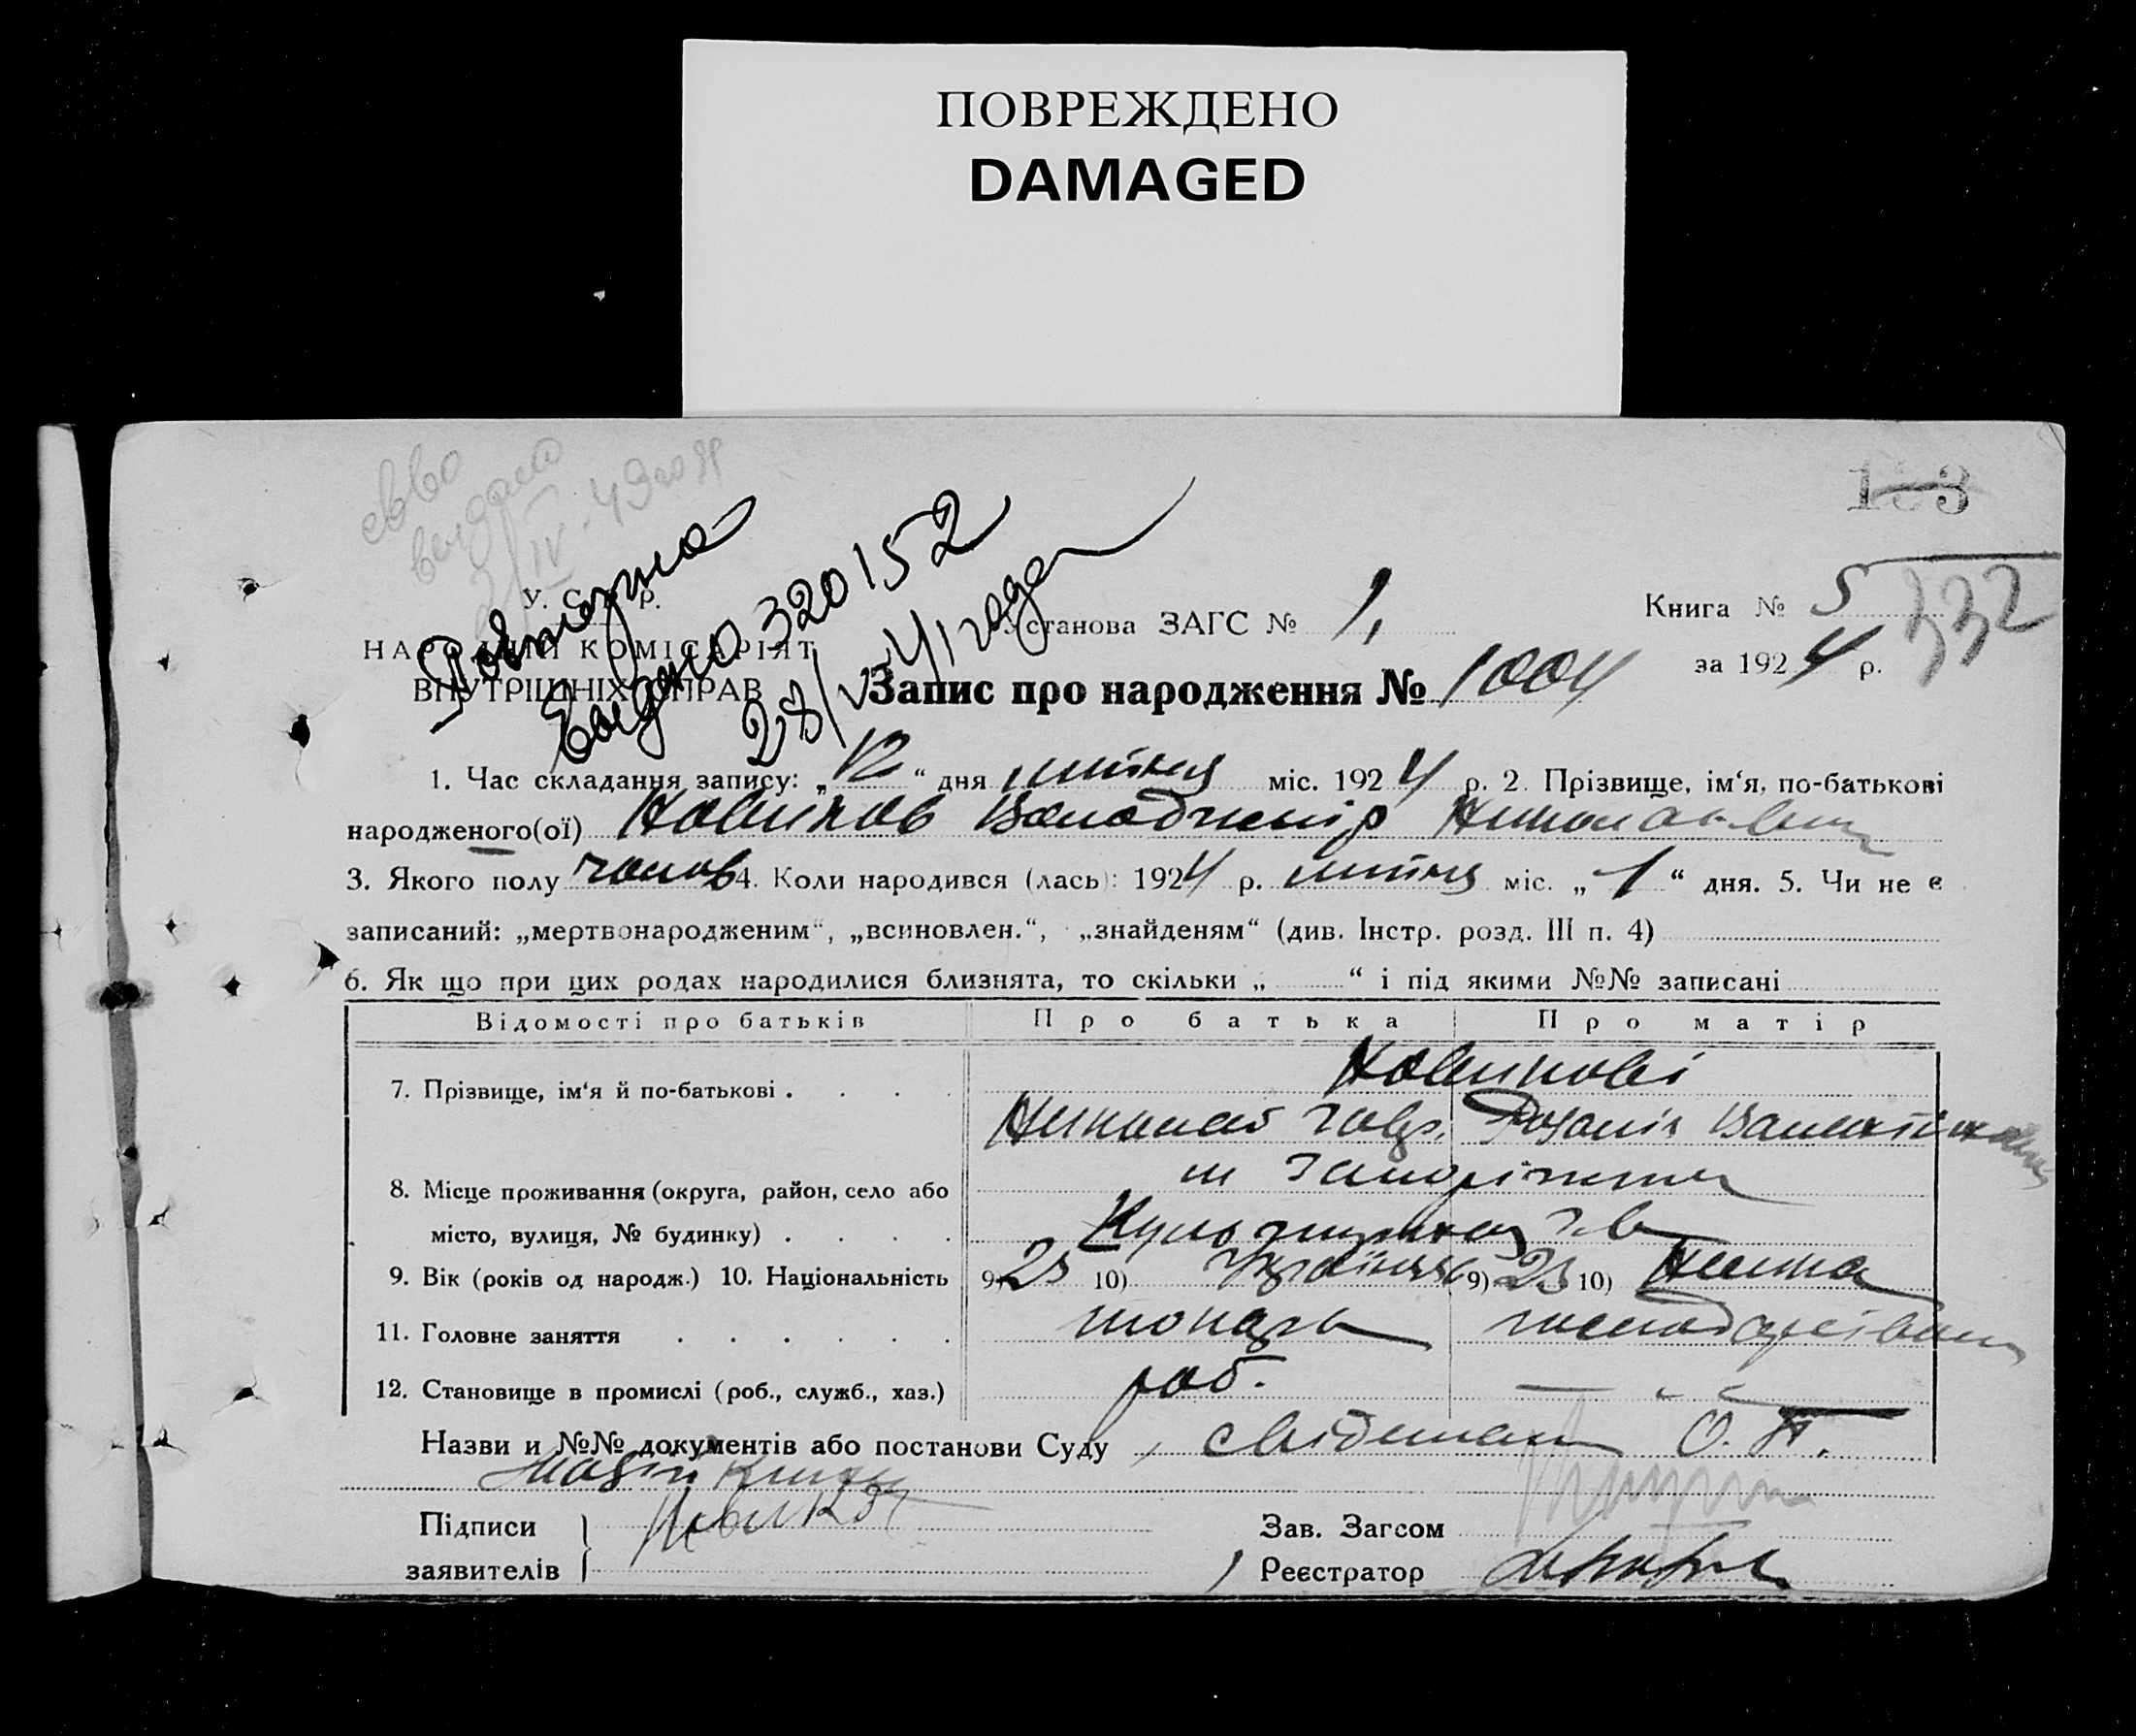 ПОВРЕЖДЕНО
DAMAGED
выдано
IV-49
133
Повторно
Выдано 320152
28/V 41 года
У. С. Р. Р.
НАРОДНІЙ КОМІСАРІЯТ
ВНУТРІШНІХ СПРАВ
Установа ЗАГС № 1,
Книга № 5
332
за 1924 р.
Запис про народження № 1004
1. Час складання запису: „12“ дня липня міс. 1924 р. 2. Прізвище, ім‘я, по-батькові
народженого(ої) Новиков Володимир Николаевич
3. Якого полу чолов 4. Коли народився (лась): 1924 р. липня міс. „1“ дня. 5. Чи не є
записаний: „мертвонародженим“, „всиновлен.“, „знайденям“ (див. Інстр. розд. III п. 4)
6. Як що при цих родах народилися близнята, то скільки „ “ і під якими №№ записані
Відомості про батьків Про батька Про матір
7. Прізвище, ім‘я й по-батькові . . . . Новикові
Николай Гавр. Розалія Валентинов
8. Місце проживання (округа, район, село або м Запоріжжя
місто, вулиця, № будинку) . . . .
9. Вік (років од народж.) 10. Національність 9) 25 10) Українец 9) 23 10) Немка
11. Головне заняття . . . . . . токарь господарství
12. Становище в промислі (роб., служб., хаз.) роб.
Назви и №№ документів або постанови Суду О. П.
Підписи Новиков
заявителів
Зав. Загсом
Реєстратор